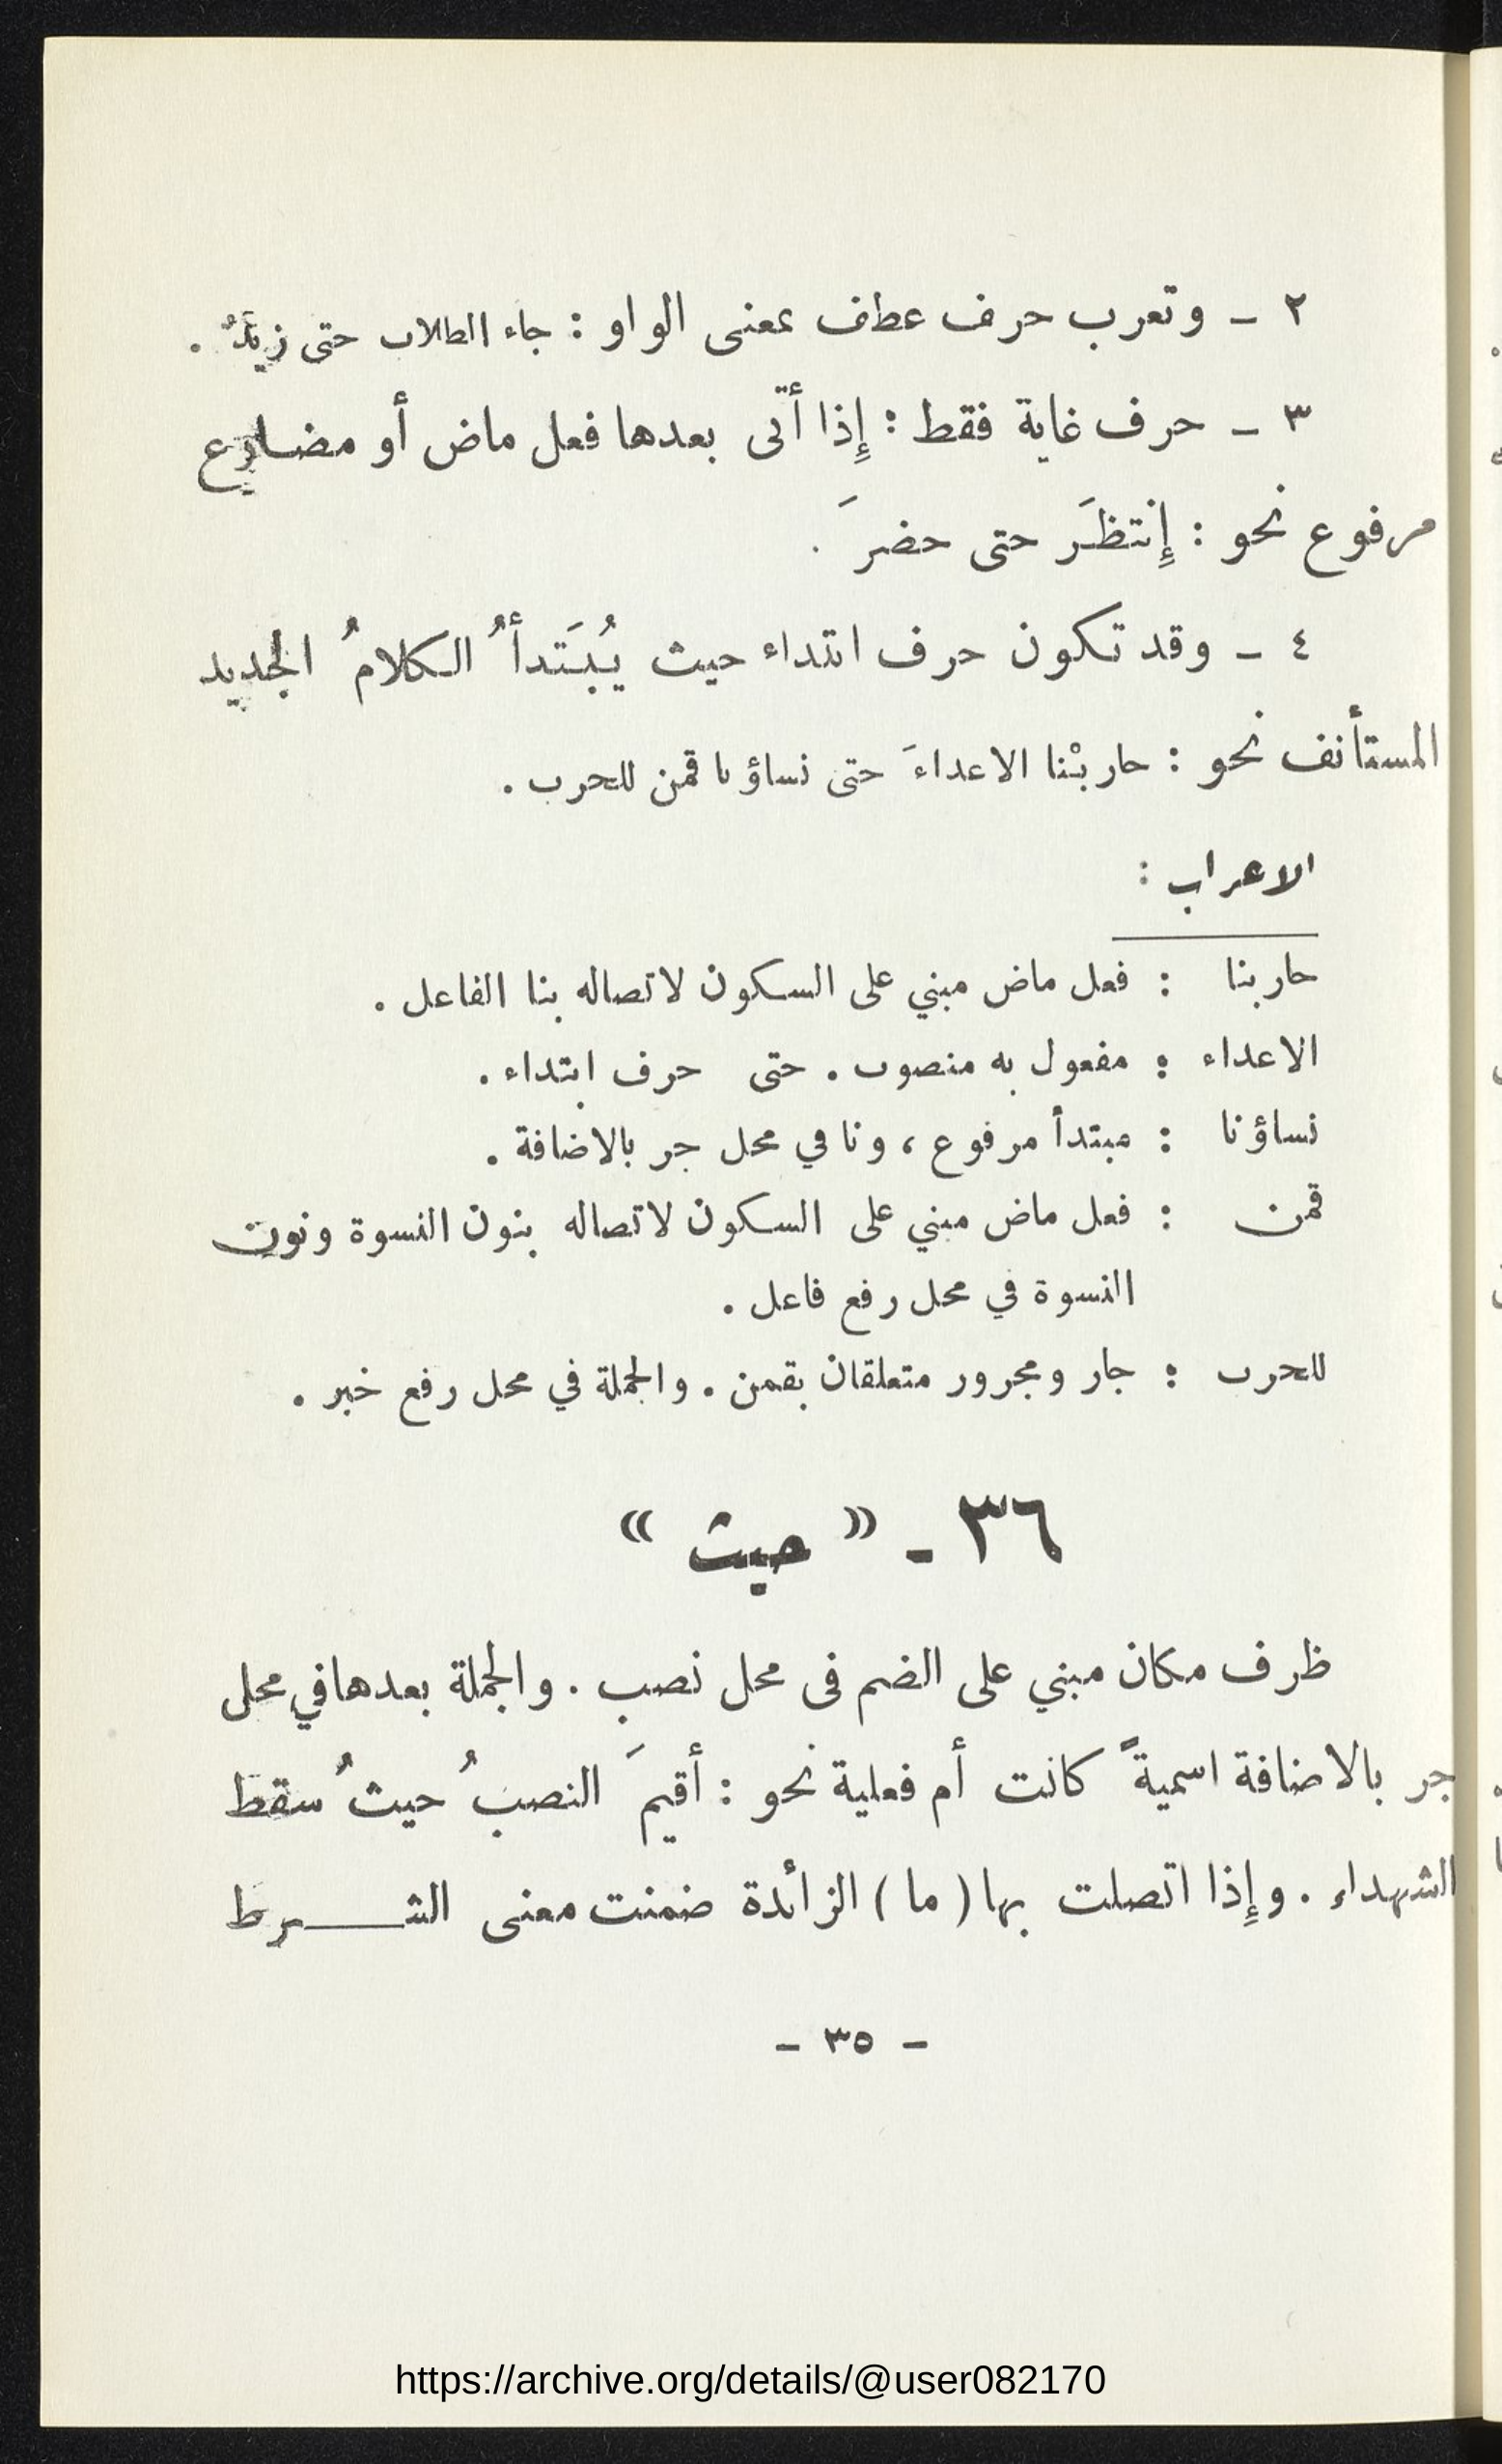 ٢ ـ وتعرب حرف عطف بمعنى الواو : جاء الطلاب حتى زيدٌ .
٣ ـ حرف غاية فقط : إِذا أتى بعدها فعل ماض أو مضارع
مرفوع نحو : إِنتظَر حتى حضرَ .
٤ ـ وقد تكون حرف ابتداء حيث يُبتَدأُ الكلامُ الجديد
المستأنف نحو : حاربْنا الاعداءَ حتى نساؤنا قمن للحرب .
الاعراب :
حاربنا : فعل ماض مبني على السكون لاتصاله بنا الفاعل .
الاعداء : مفعول به منصوب . حتى حرف ابتداء .
نساؤنا : مبتدأ مرفوع ، ونا في محل جر بالاضافة .
قمن : فعل ماض مبني على السكون لاتصاله بنون النسوة ونون
النسوة في محل رفع فاعل .
للحرب : جار ومجرور متعلقان بقمن . والجملة في محل رفع خبر .
٣٦ ـ « حيث »
ظرف مكان مبني على الضم في محل نصب . والجملة بعدها في محل
جر بالاضافة اسميةً كانت أم فعلية نحو : أقيمَ النصبُ حيثُ سقط
الشهداء . وإِذا اتصلت بها ( ما ) الزائدة ضمنت معنى الشـــرط
ـ ٣٥ ـ
https://archive.org/details/@user082170